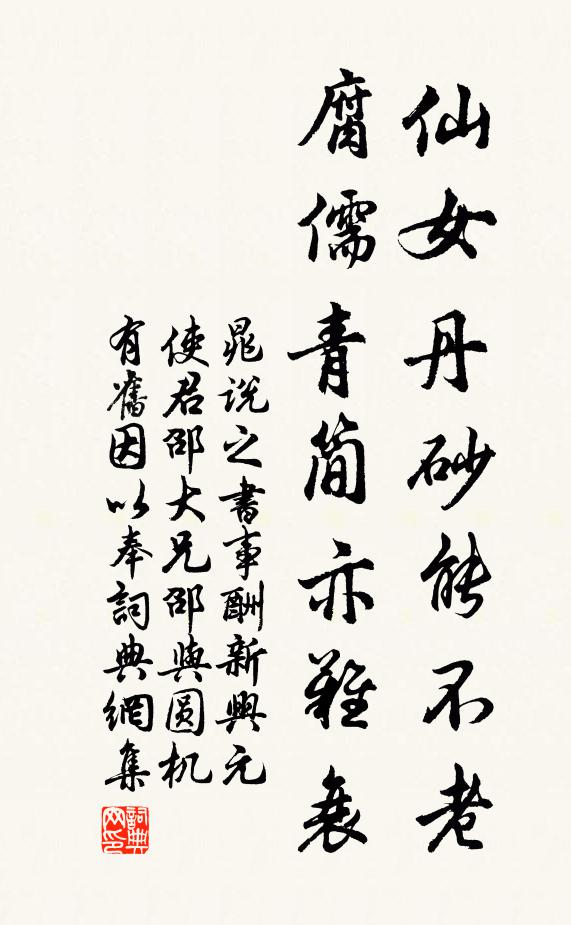 仙女丹砂能不老
腐儒青简亦难衰
晁说之書事酬新興元
使君邵大兄邵與圆机
有舊因以奉詞典網集
詞典网印